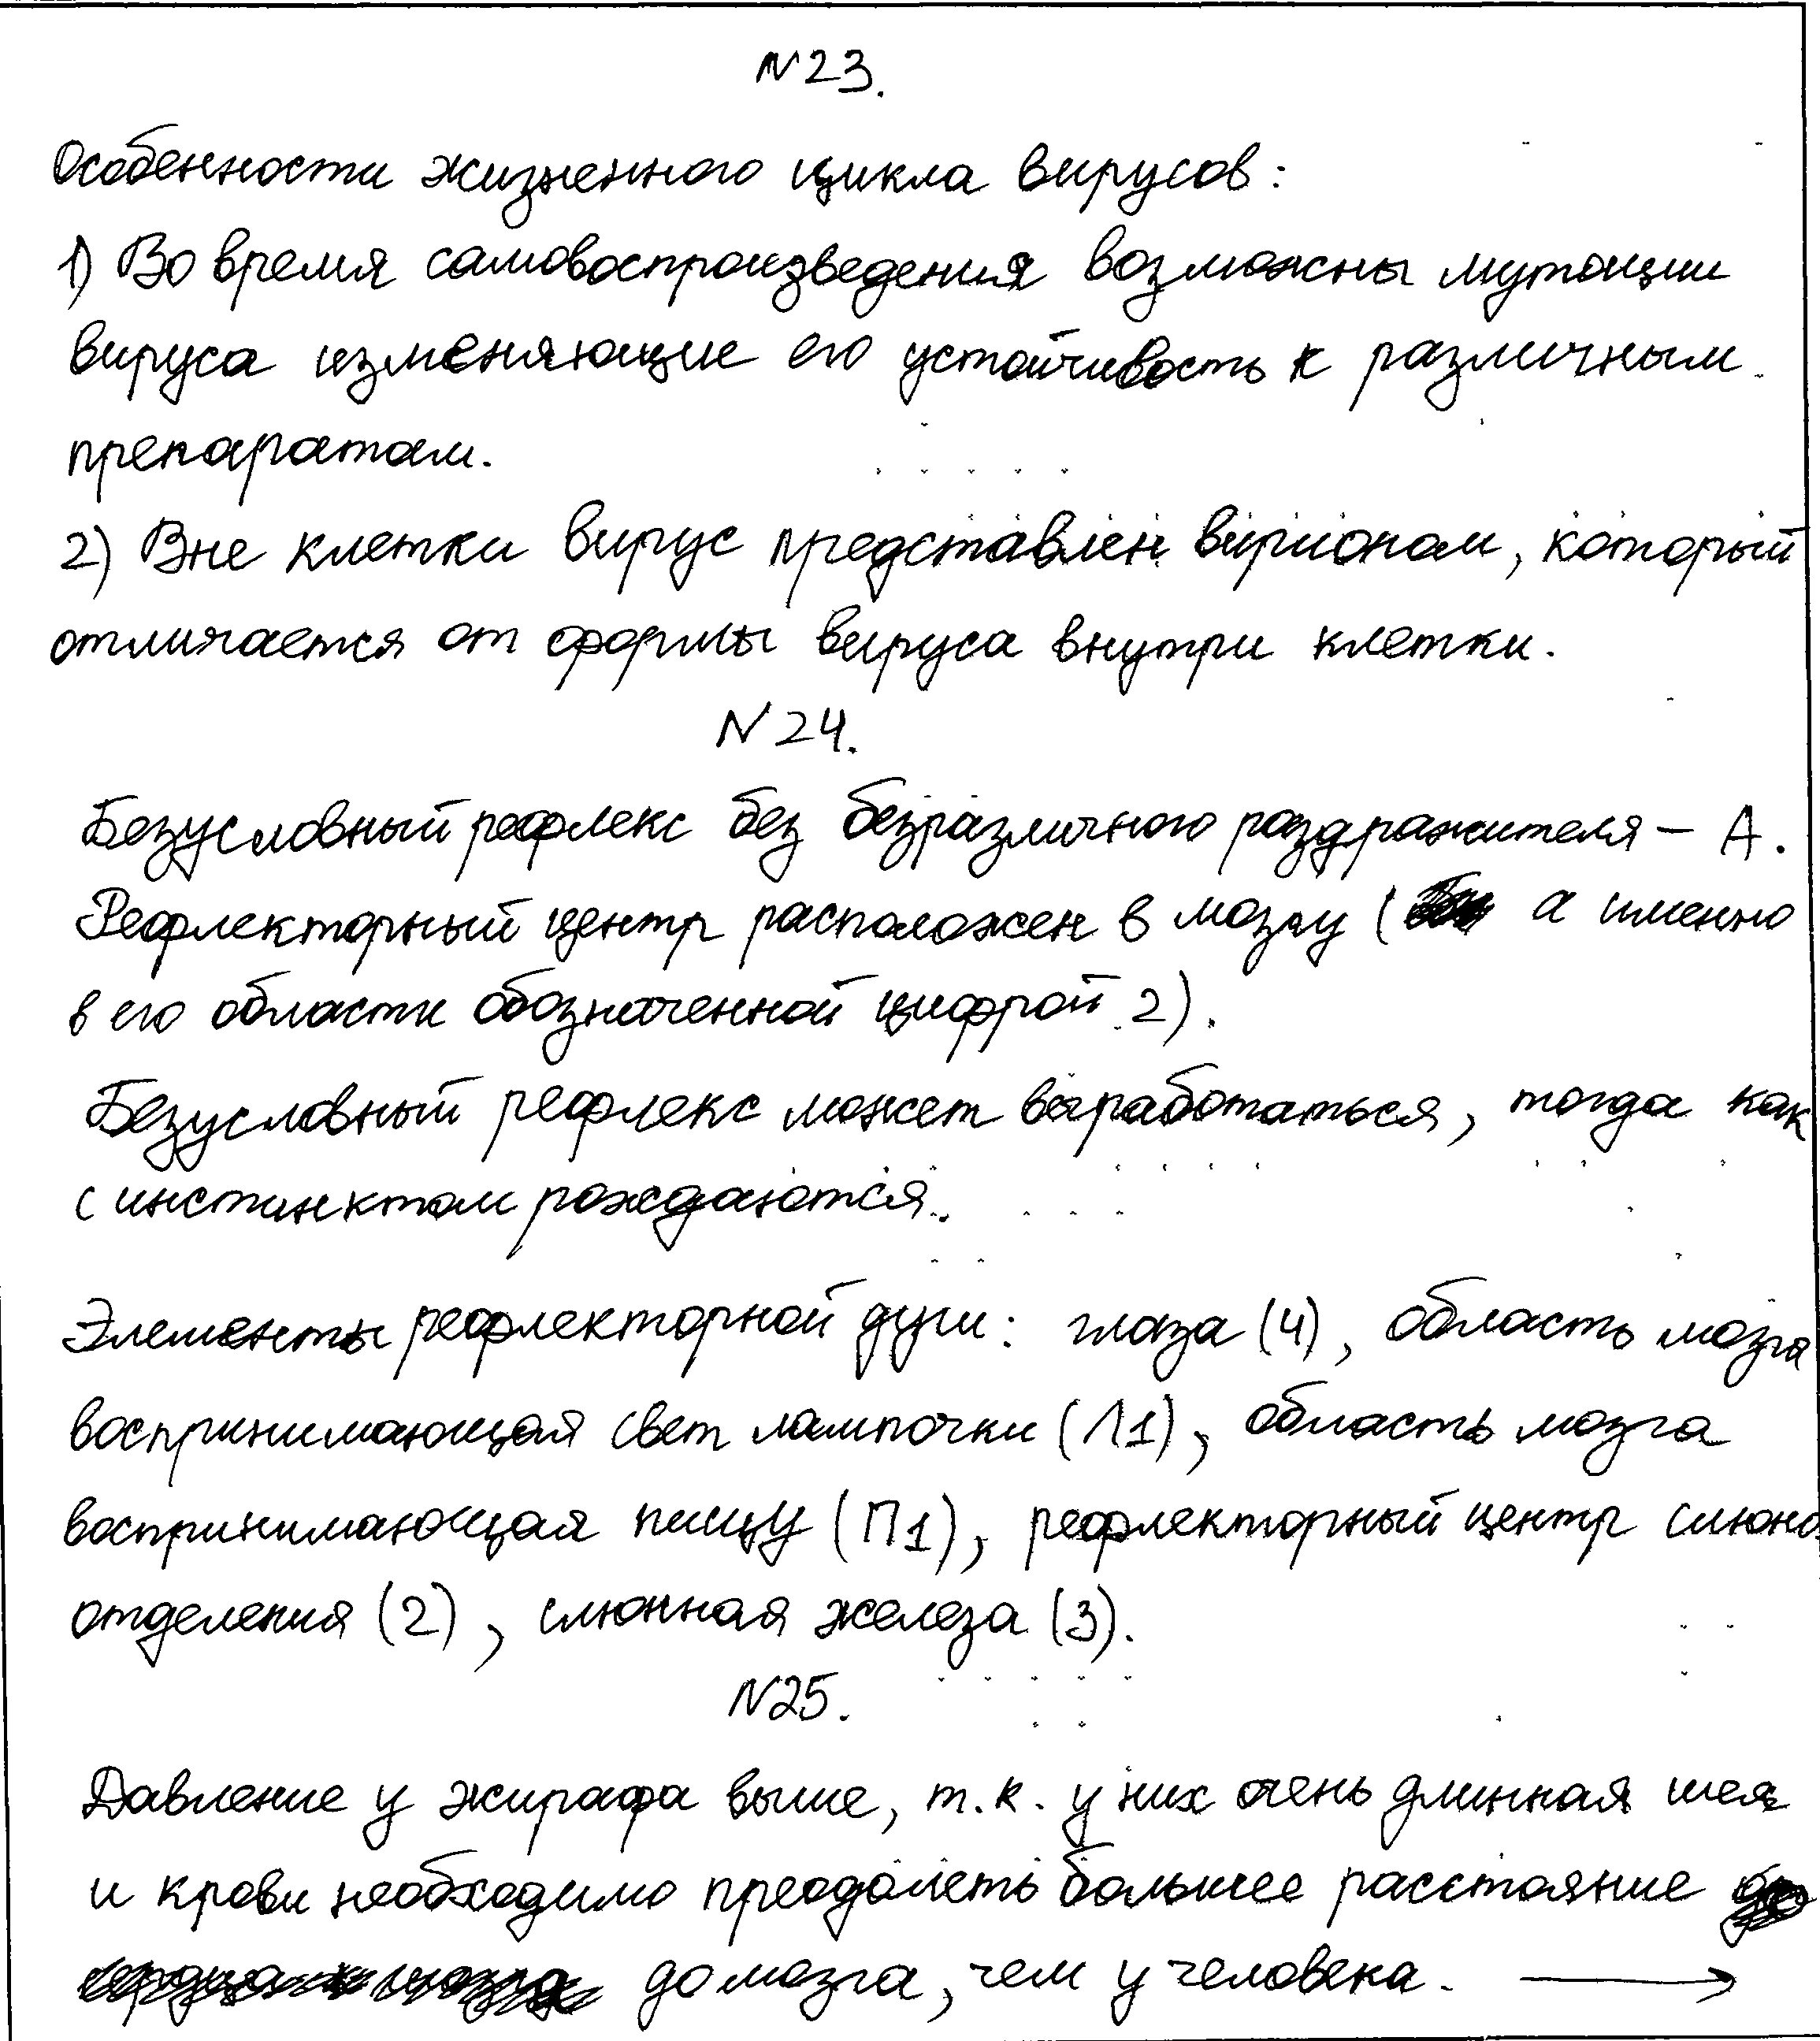 N23.
Особенности жизненного цикла вирусов:
1) Во время самовоспроизведения возможны мутации
вируса изменяющие его устойчивость к различным
препаратам.
2) Вне клетки вирус представлен вирионом, который
отличается от формы вируса внутри клетки.
N24.
Безусловный рефлекс без безразличного раздражителя – А.
Рефлекторный центр расположен в мозгу ( а именно
в его области обозначенной цифрой 2).
Безусловный рефлекс может выработаться, тогда как
с инстинктом рождаются.
Элементы рефлекторной дуги: глаза (4), область мозга
воспринимающая свет лампочки (Л1), область мозга
воспринимающая пищу (П1), рефлекторный центр слюно
отделения (2), слюнная железа (3).
N25.
Давление у жирафа выше, т.к. у них очень длинная шея
и крови необходимо преодолеть большее расстояние
до мозга, чем у человека. →